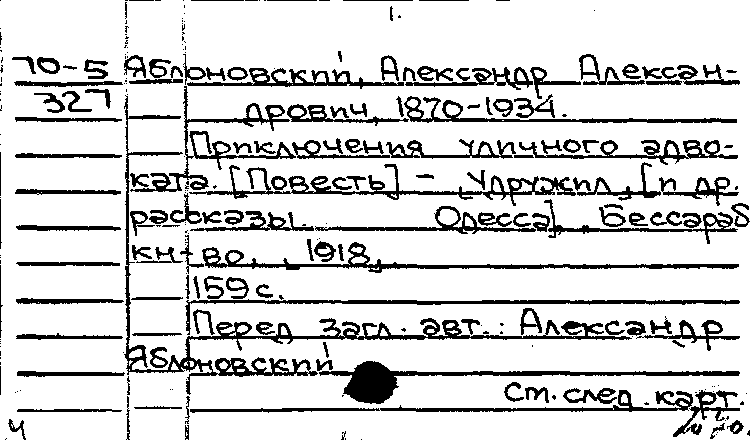 1.
70-5 Яблоновский, Александр Алексан-
327 дрович, 1870-1934.
Приключения уличного адво-
ката. [Повесть] - „Удружил„ [и др.
рассказы. Одесса], Бессараб
кн-во, „1918„.
159 с.
Перед загл. авт.: Александр
Яблоновский
См. след. карт.
ч